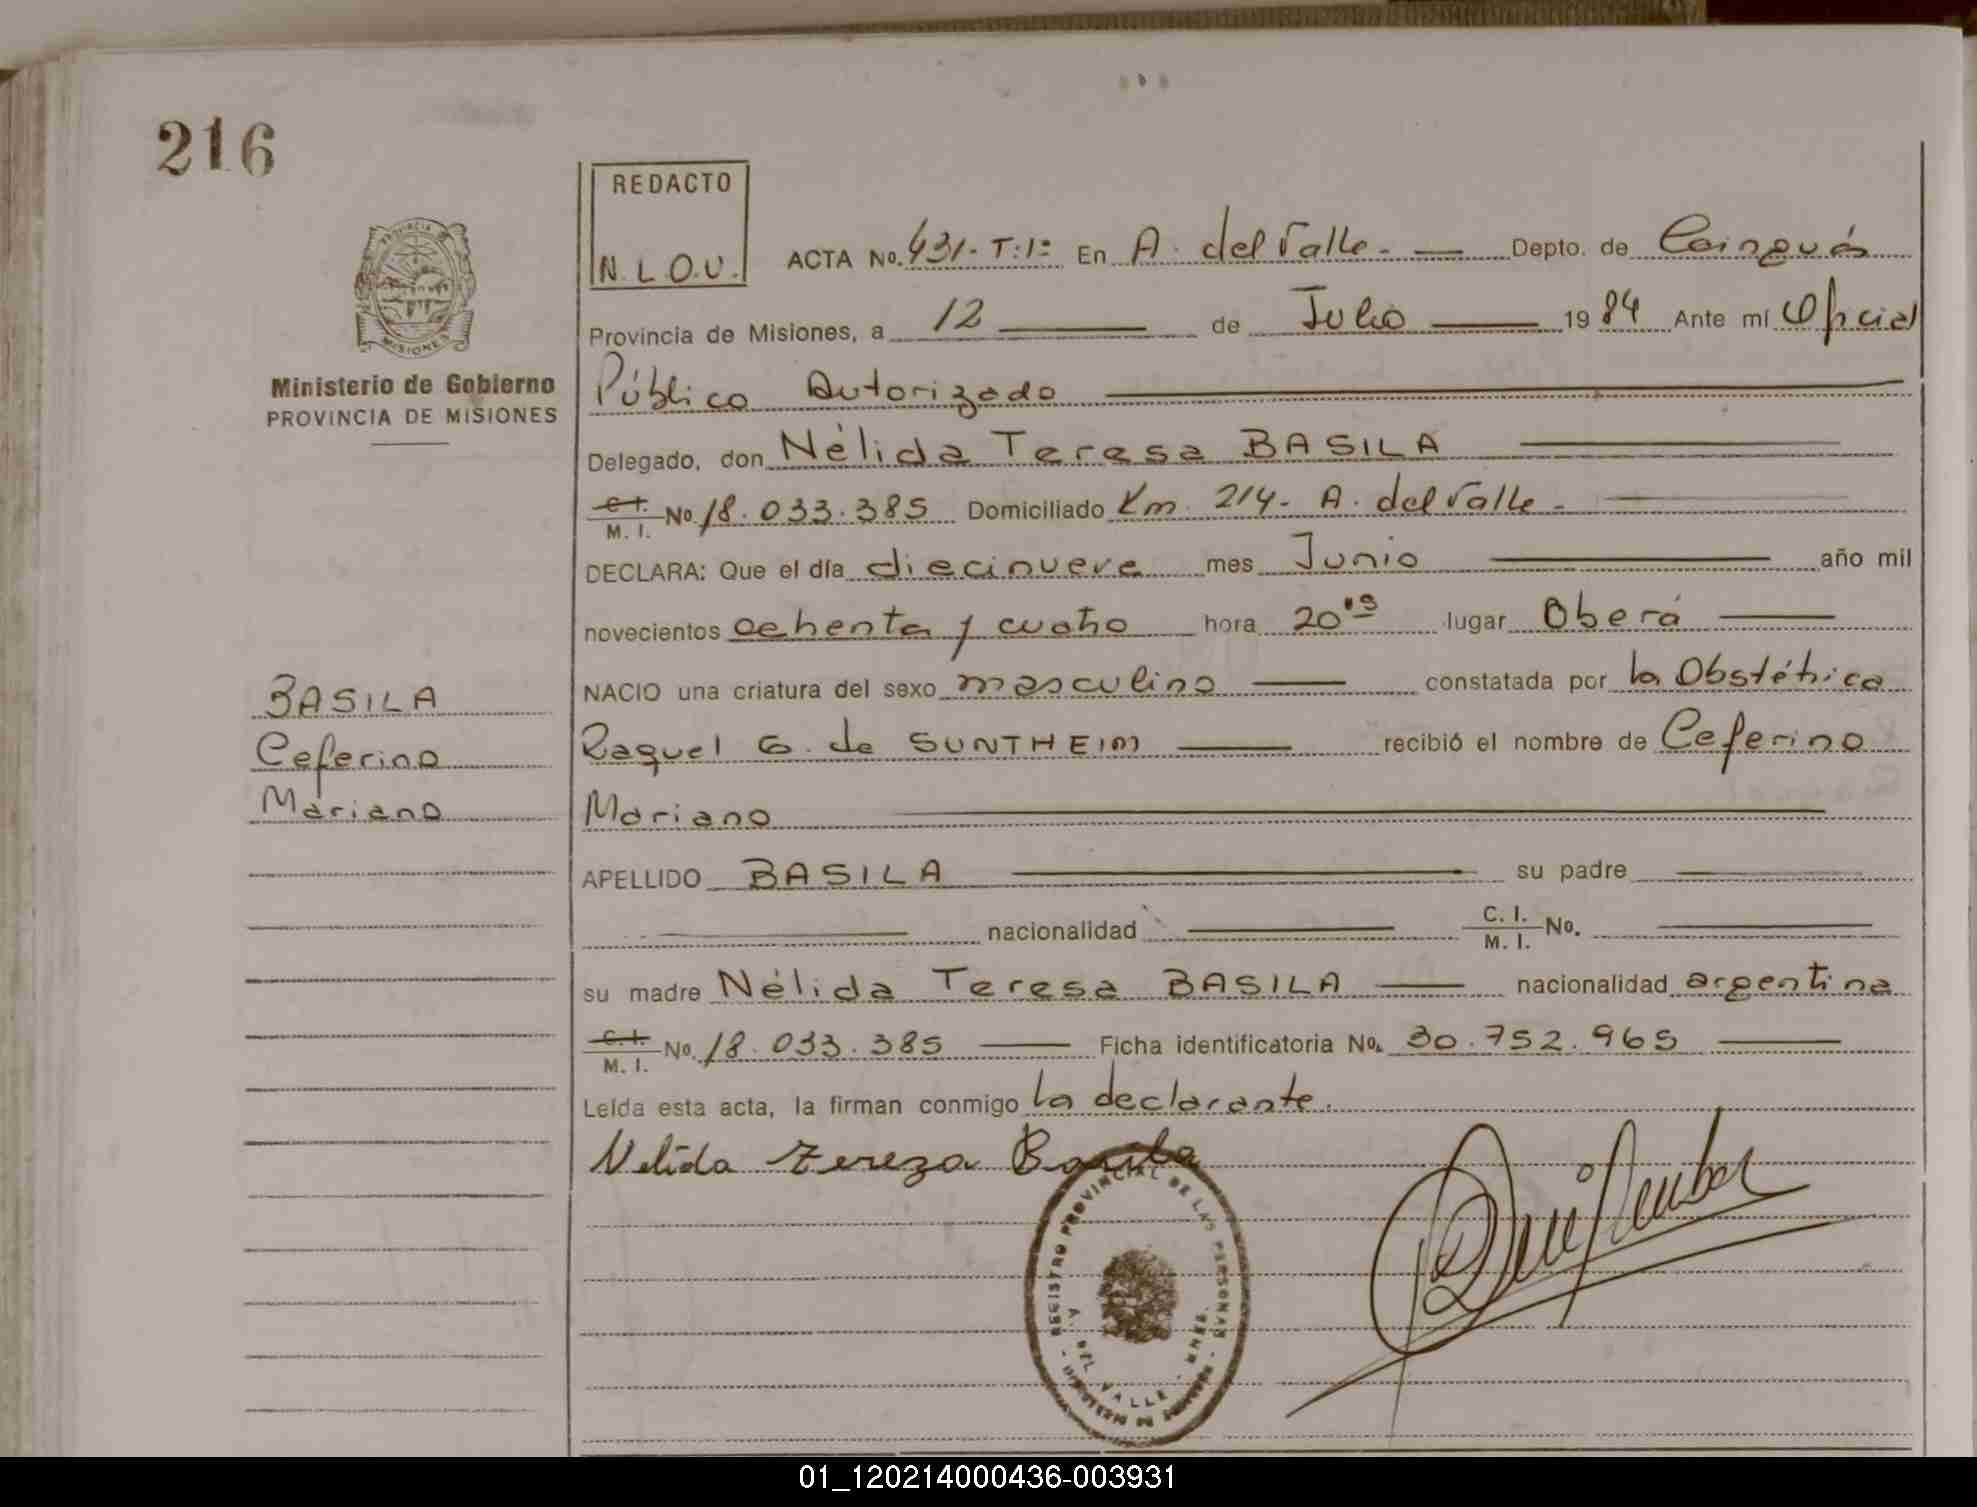 216
REDACTO
N.L.O.U.
ACTA No. 431-T:1º En A. del Valle.- Depto. de Cainguás
Provincia de Misiones, a 12 de Julio 1984 Ante mí Oficial
Público Autorizado
Delegado, don Nélida Teresa BASILA
C.I. M. I. No. 18.033.385 Domiciliado Km. 214- A. del Valle-
DECLARA: Que el día diecinueve mes Junio año mil
novecientos ochenta y cuatro hora 20 hs lugar Oberá
NACIO una criatura del sexo masculino constatada por la Obstétrica
Raquel G. de SUNTHEIM recibió el nombre de Ceferino
Mariano
APELLIDO BASILA su padre
nacionalidad C. I. M. I. No.
su madre Nélida Teresa BASILA nacionalidad argentina
C.I. M. I. No. 18.033.385 Ficha identificatoria No. 30.752.965
Leída esta acta, la firman conmigo la declarante.
Nelida Tereza Basila
PROVINCIA DE
MISIONES
Ministerio de Gobierno
PROVINCIA DE MISIONES
BASILA
Ceferino
Mariano
REGISTRO PROVINCIAL DE LAS PERSONAS
A. DEL VALLE - MNES.
01_120214000436-003931